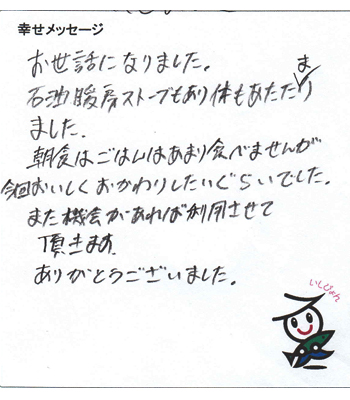 幸せメッセージ
お世話になりました。
石油暖房ストーブもあり体もあたたまり
ました。
朝食はごはんはあまり食べませんが
今回おいしくおかわりしたいぐらいでした。
また機会があれば利用させて
頂きます。
ありがとうございました。
いしじょん